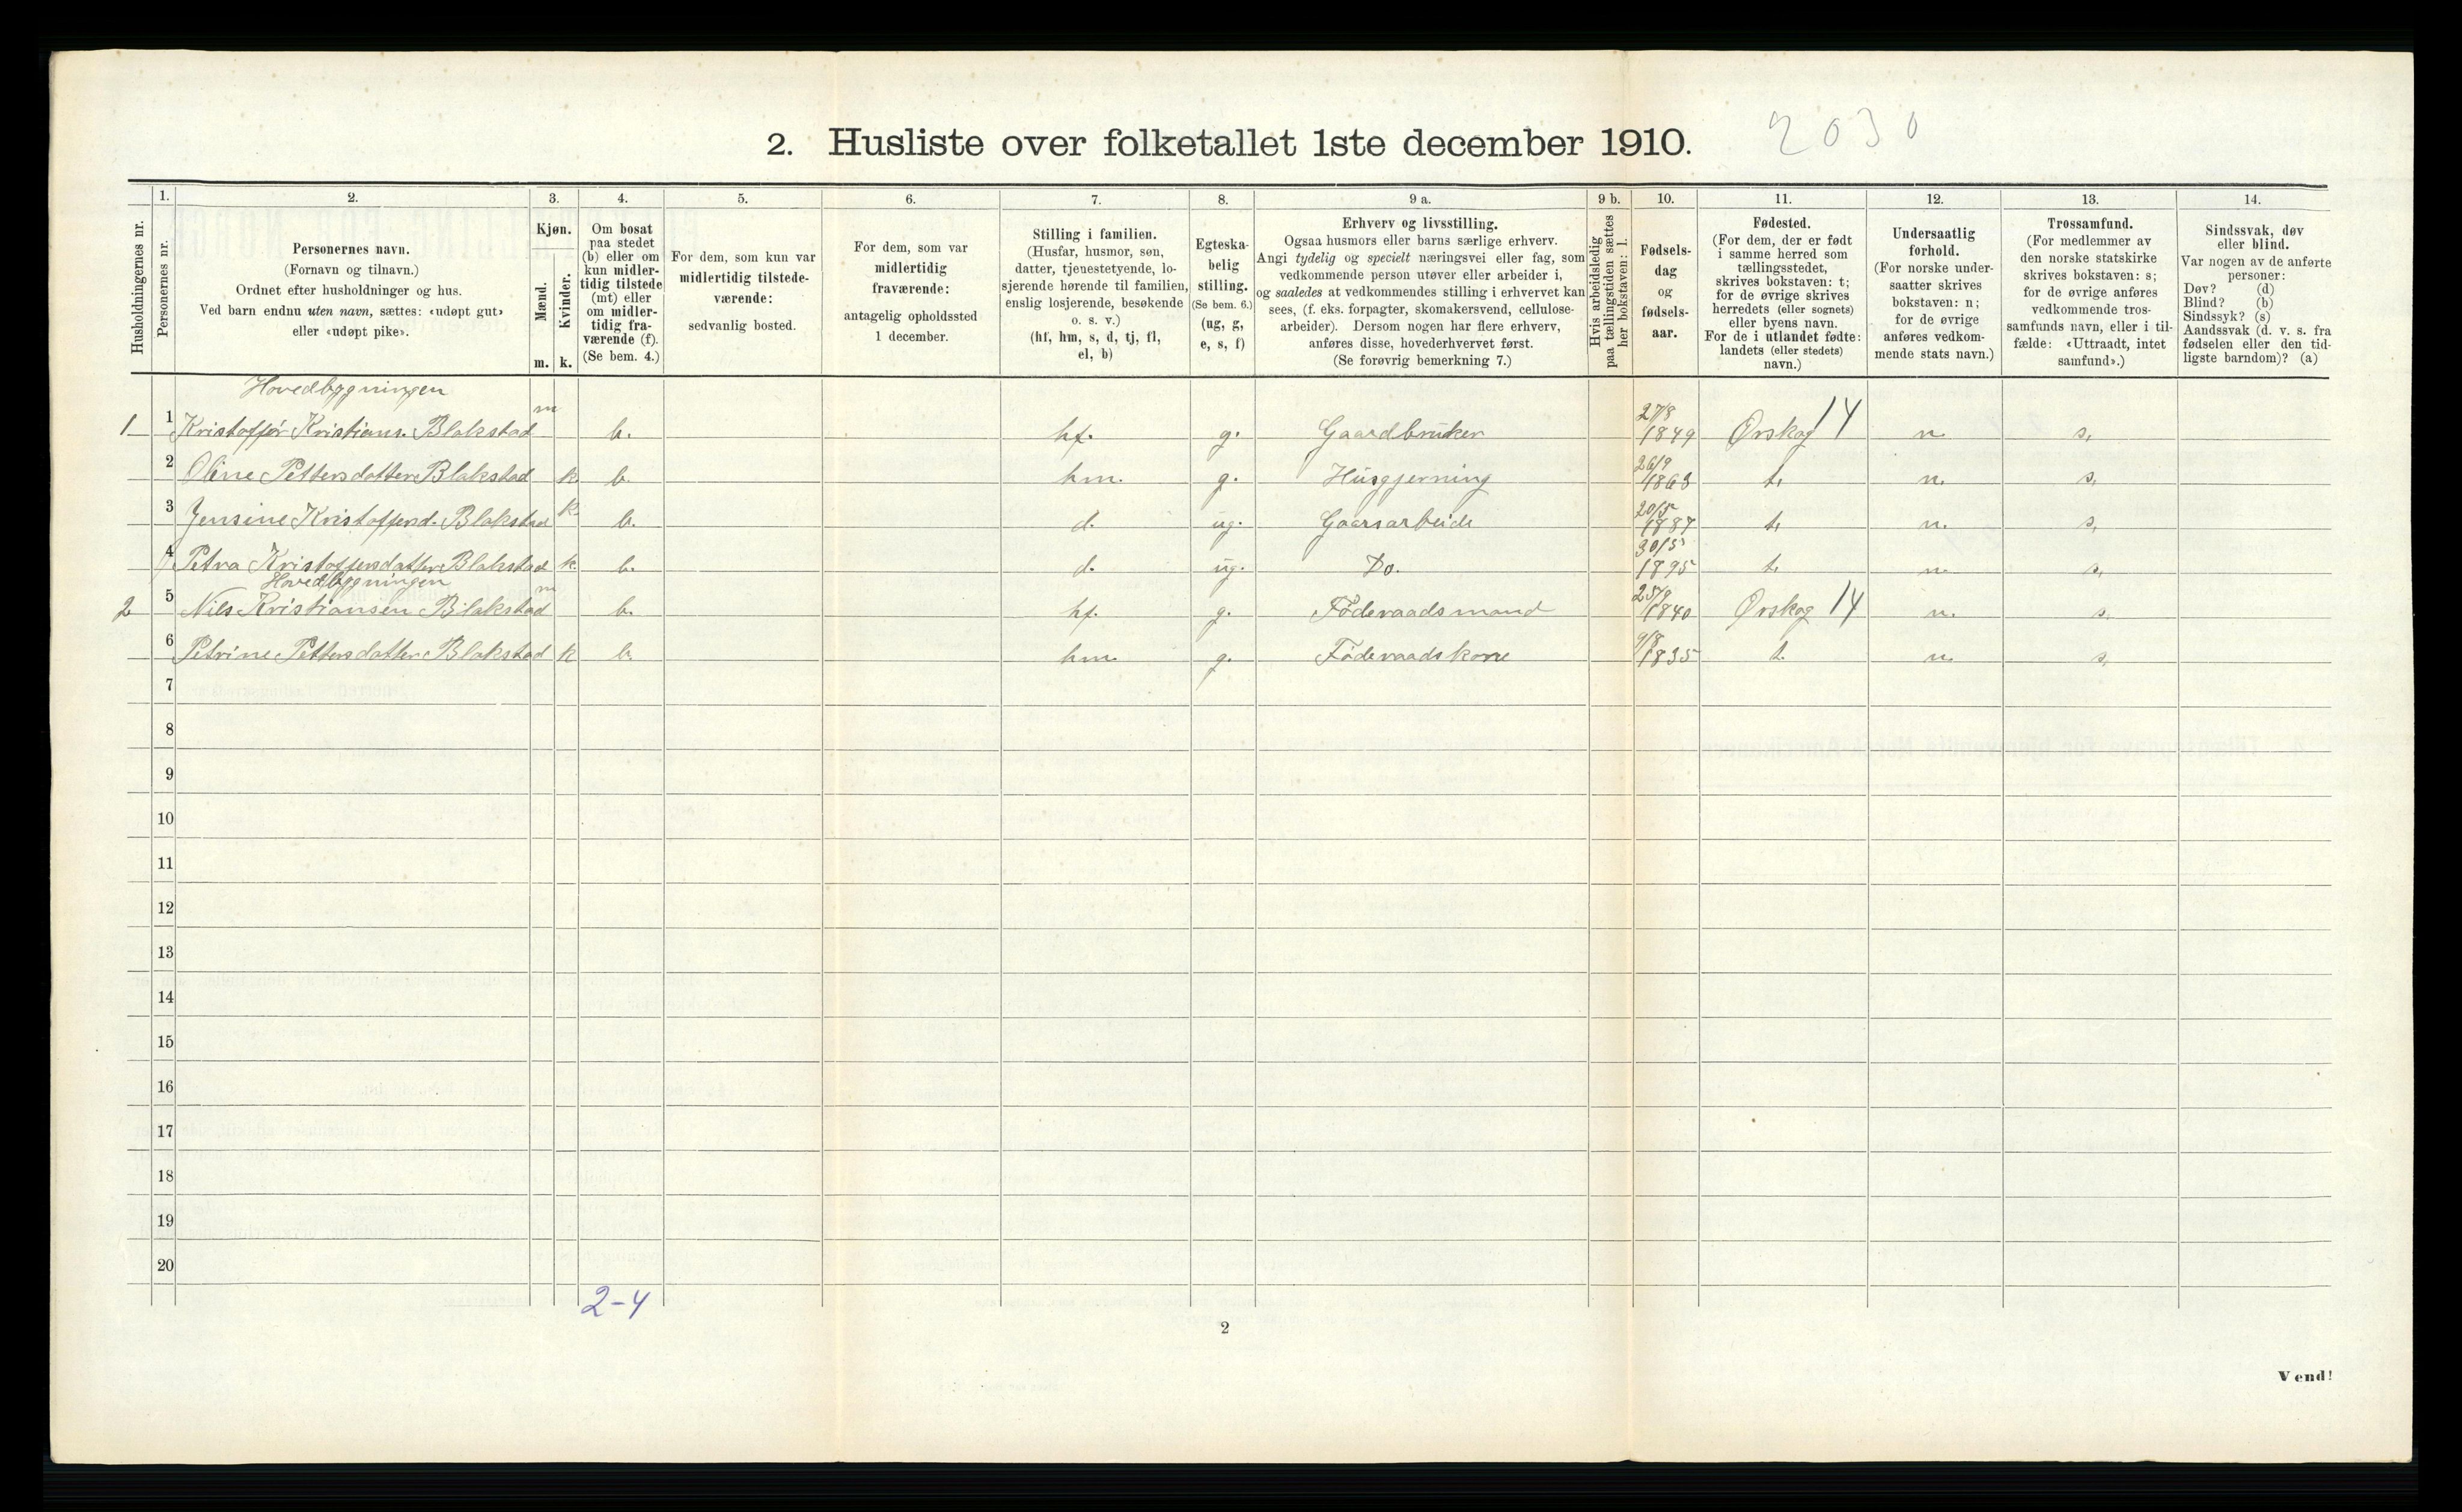 2. Husliste over folketallet 1ste december 1910.
2030
Husholdningernes nr.
1.
Personernes nr.
2.
Personernes navn.
(Fornavn og tilnavn.)
Ordnet efter husholdninger og hus.
Ved barn endnu uten navn, sættes: «udøpt gut»
eller «udøpt pike».
3.
Kjøn.
Mænd.
m.
Kvinder.
k.
4.
Om bosat
paa stedet
(b) eller om
kun midler-
tidig tilstede
(mt) eller
om midler-
tidig fra-
værende (f).
(Se bem. 4.)
5.
For dem, som kun var
midlertidig tilstede-
værende:
sedvanlig bosted.
6.
For dem, som var
midlertidig
fraværende:
antagelig opholdssted
1 december.
7.
Stilling i familien.
(Husfar, husmor, søn,
datter, tjenestetyende, lo-
sjerende hørende til familien,
enslig losjerende, besøkende
o. s. v.)
(hf, hm, s, d, tj, fl,
el, b)
8.
Egteska-
belig
stilling.
(Se bem. 6.)
(ug, g,
e, s, f)
9 a.
Erhverv og livsstilling.
Ogsaa husmors eller barns særlige erhverv.
Angi tydelig og specielt næringsvei eller fag, som
vedkommende person utøver eller arbeider i,
og saaledes at vedkommendes stilling i erhvervet kan
sees, (f. eks. forpagter, skomakersvend, cellulose-
arbeider). Dersom nogen har flere erhverv,
anføres disse, hovederhvervet først.
(Se forøvrig bemerkning 7.)
9 b.
Hvis arbeidsledig
paa tællingstiden sættes
her bokstaven: l.
10.
Fødsels-
dag
og
fødsels-
aar.
11.
Fødested.
(For dem, der er født
i samme herred som
tællingsstedet,
skrives bokstaven: t;
for de øvrige skrives
herredets (eller sognets)
eller byens navn.
For de i utlandet fødte:
landets (eller stedets)
navn.)
12.
Undersaatlig
forhold.
(For norske under-
saatter skrives
bokstaven: n;
for de øvrige
anføres vedkom-
mende stats navn.)
13.
Trossamfund.
(For medlemmer av
den norske statskirke
skrives bokstaven: s;
for de øvrige anføres
vedkommende tros-
samfunds navn, eller i til-
fælde: «Uttraadt, intet
samfund».)
14.
Sindssvak, døv
eller blind.
Var nogen av de anførte
personer:
Døv? (d)
Blind? (b)
Sindssyk? (s)
Aandssvak (d. v. s. fra
fødselen eller den tid-
ligste barndom)? (a)
Hovedbygningen
1 1 Kristoffer Kristians. Blakstad m b. hf. g. Gaardbruker 27/8 1849 Ørskog 14 n. s.
2 Oline Pettersdatter Blakstad k b. hm. g. Husgjerning 26/9 1863 t. n. s.
3 Jensine Kristofferd. Blakstad k b. d. ug. Gaarsarbeide 20/5 1887 t. n. s.
4 Petra Kristoffersdatter Blakstad k b. d. ug. Do. 30/5 1895 t. n. s.
Hovedbygningen
2 5 Nils Kristiansen Blakstad m b. hf. g. Føderaadsmand 25/9 1840 Ørskog 14 n. s.
6 Petrine Pettersdatter Blakstad k b. hm. g. Føderaadskone 9/8 1835 t. n. s.
7
8
9
10
11
12
13
14
15
16
17
18
19
20
2-4
2
Vend!